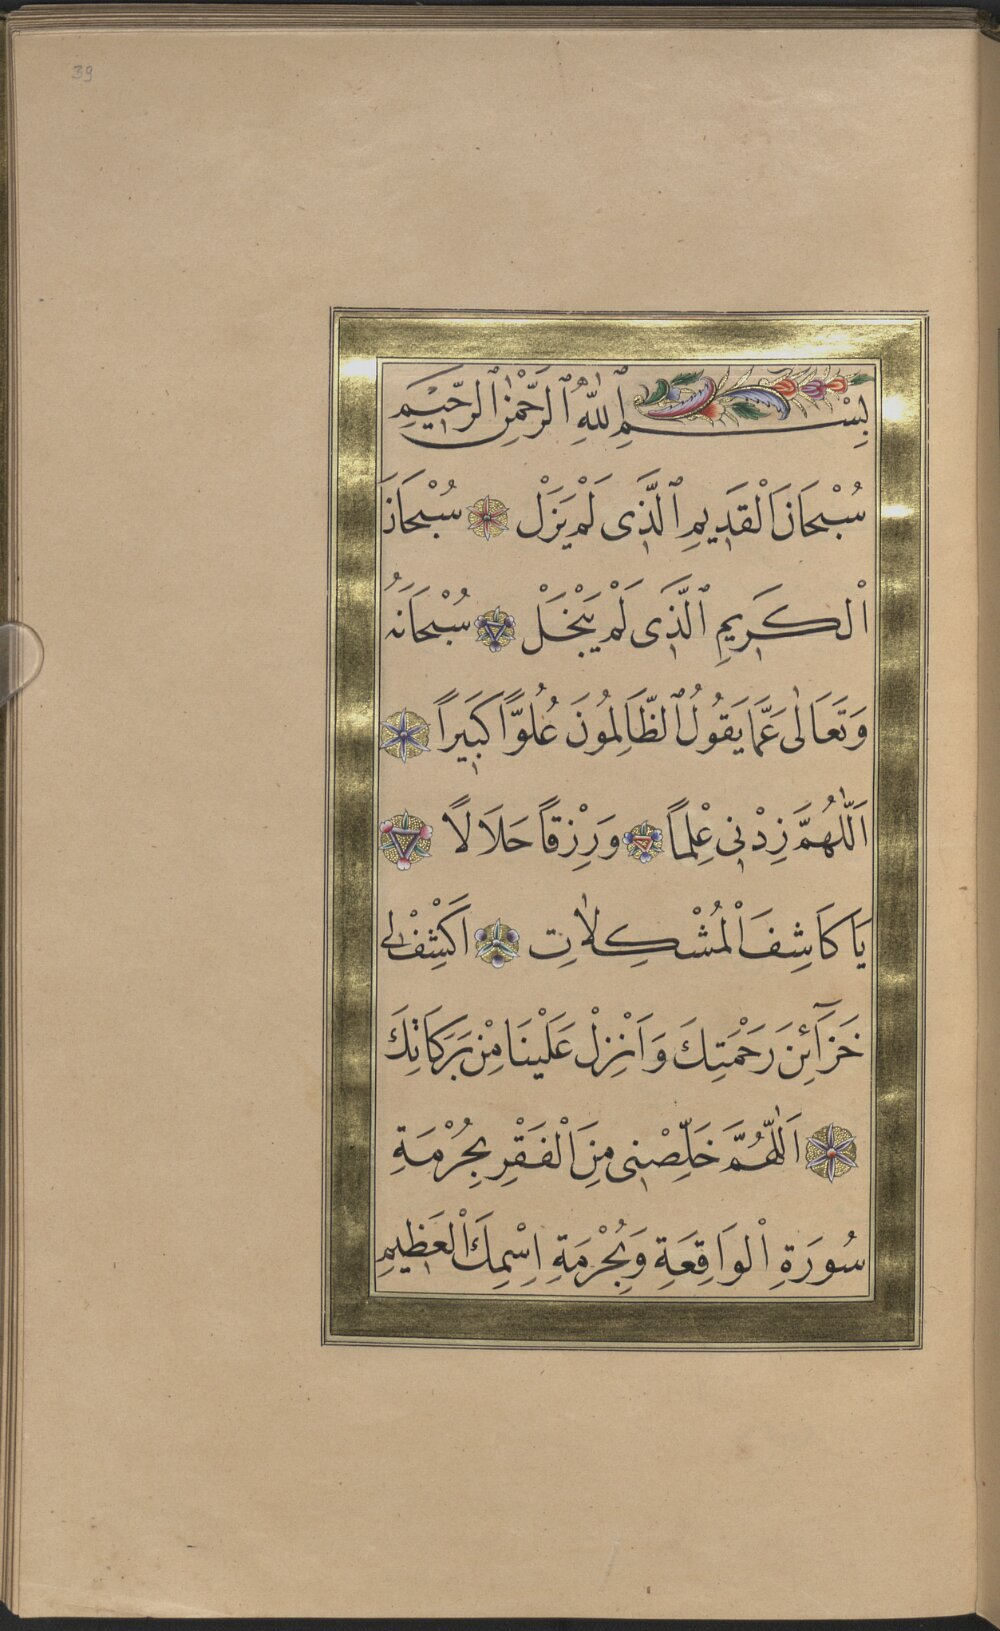 39
بِسْمِ ٱللّٰهِ ٱلرَّحْمٰنِ ٱلرَّحِيمِ
سُبْحَانَ الْقَدِيمِ ٱلَّذِى لَمْ يَزَلْ سُبْحَانَ
اْلكَرِيمِ ٱلَّذِى لَمْ يَبْخَلْ سُبْحَانَهُ
وَتَعَالٰى عَمَّا يَقُولُ ٱلظَّالِمُونَ عُلُوًّا كَبِيرًا
اَللّٰهُمَّ زِدْنِى عِلْمًا وَرِزْقًا حَلَالًا
يَا كَاشِفَ الْمُشْكِلَاتِ اَكْشِفْ لِى
خَزَآئِنَ رَحْمَتِكَ وَاَنْزِلْ عَلَيْنَا مِنْ بَرَكَاتِكَ
اَللّٰهُمَّ خَلِّصْنِى مِنَ الْفَقْرِ بِحُرْمَةِ
سُورَةِ اْلوَاقِعَةِ وَبِحُرْمَةِ اِسْمِكَ الْعَظِيمِ